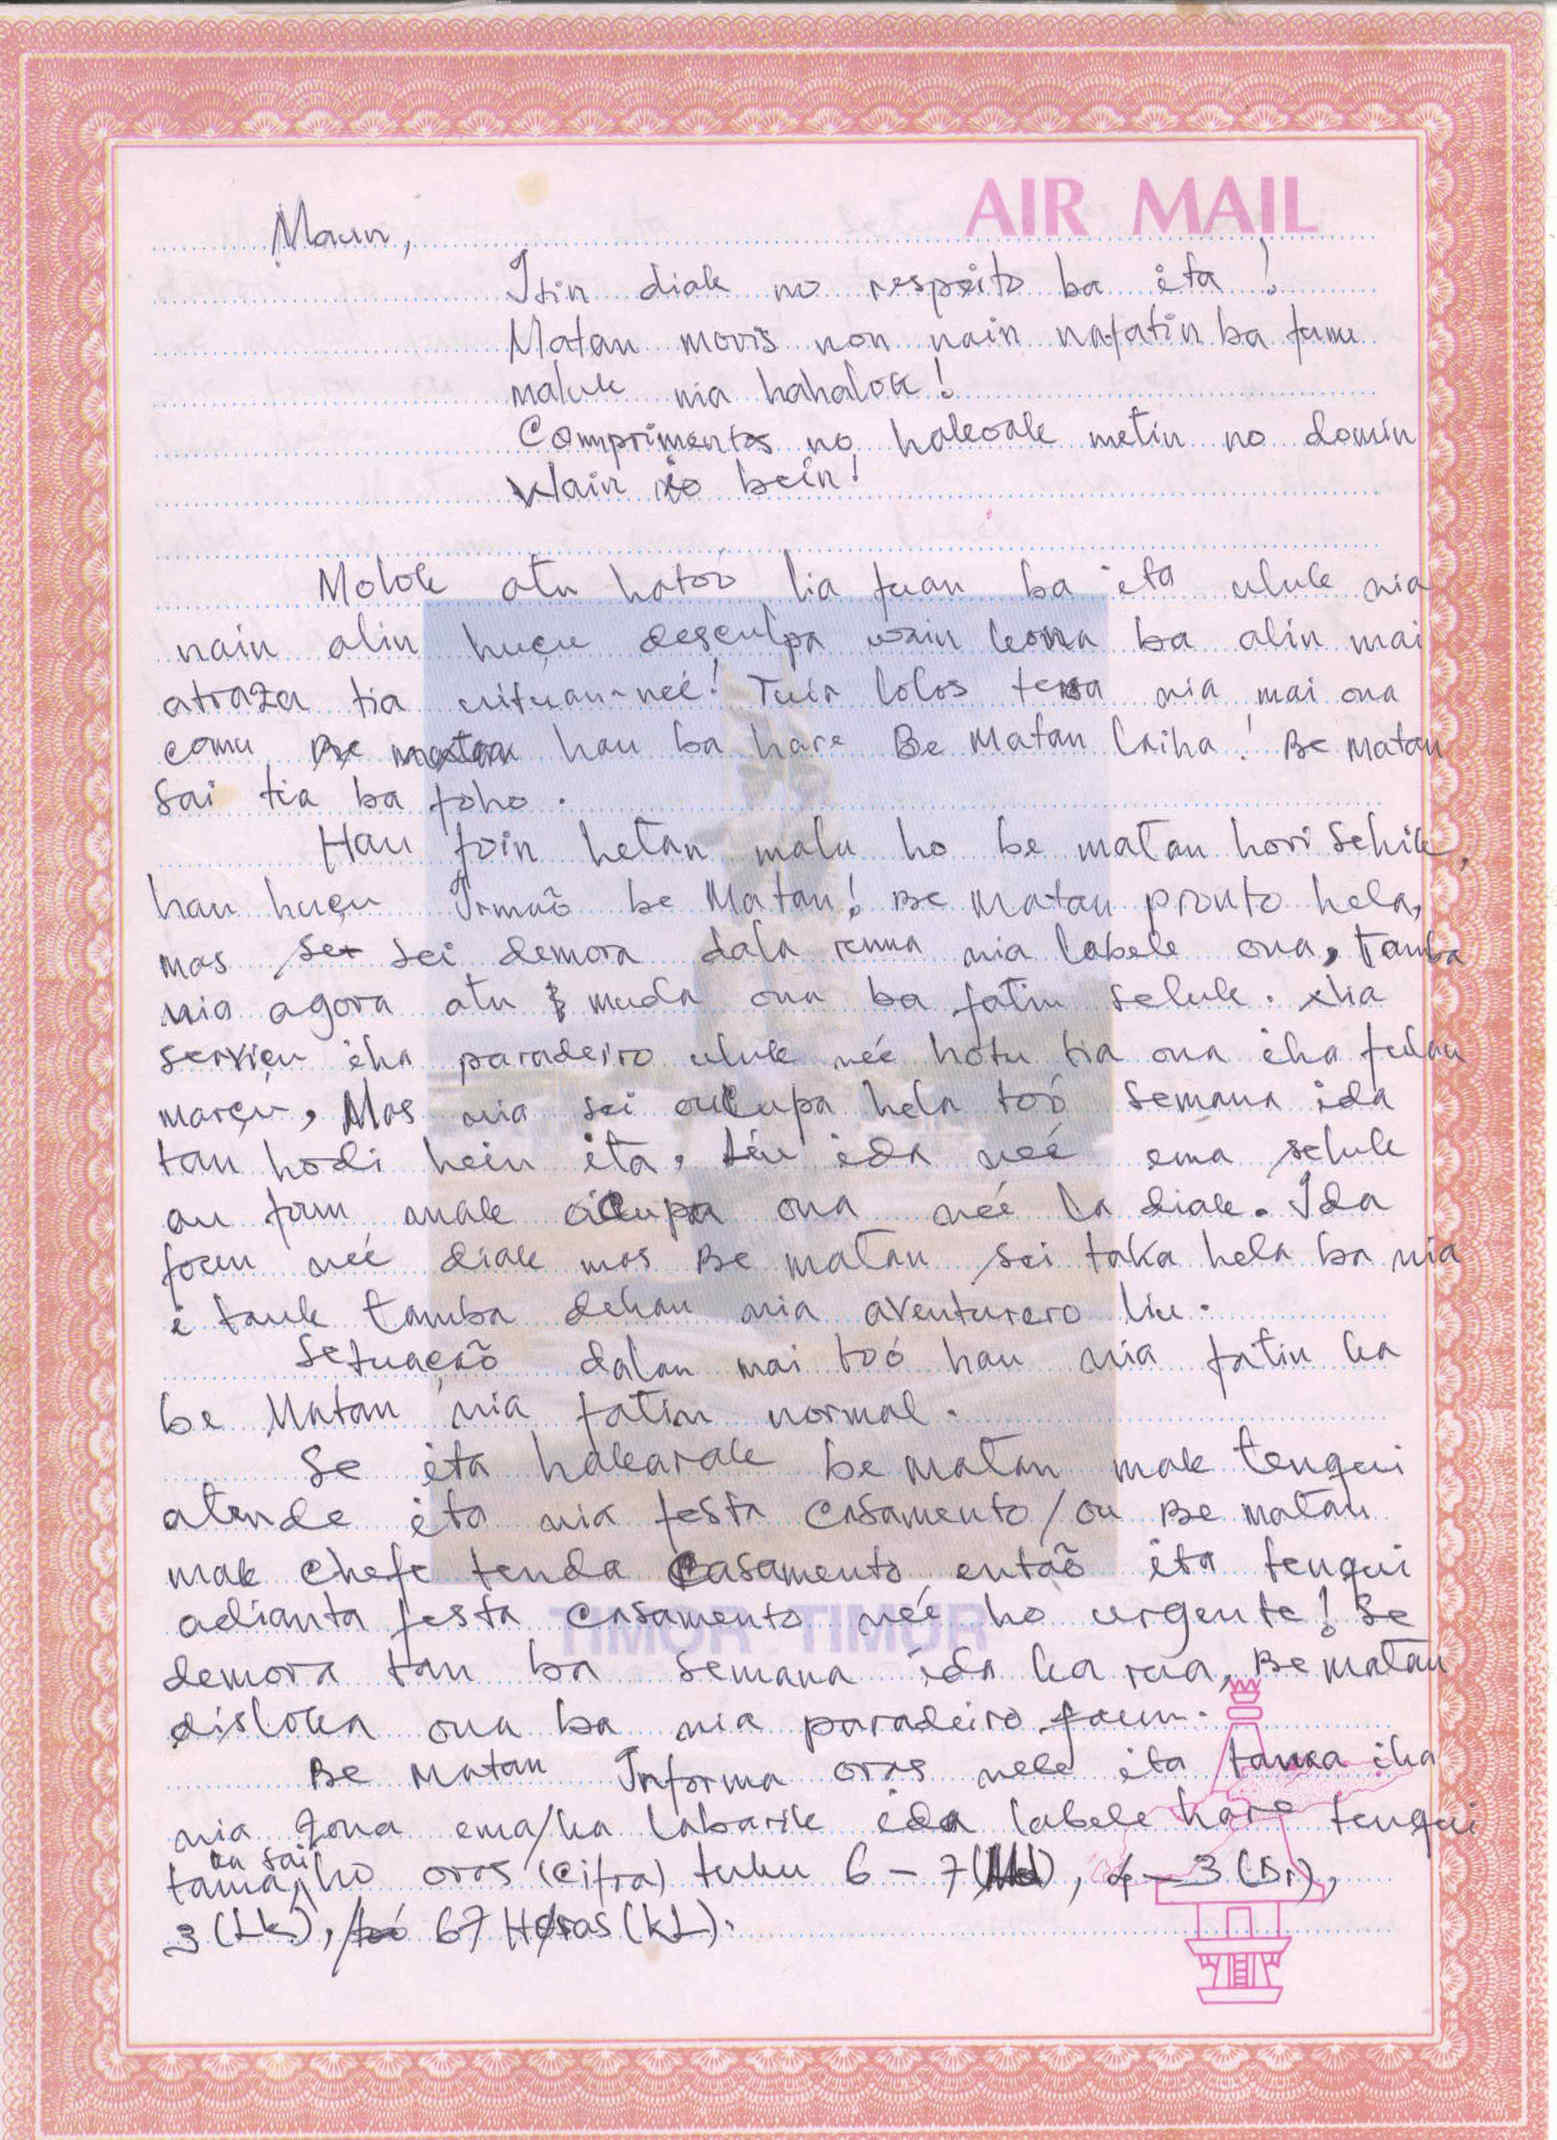 AIR MAIL
Maun,
Isin diak no respeito ba ita!
Matan moris non nain nafatin ba funu
maluk nia hahalok!
Comprimentos no hakoak metin no domin
Wain ío bein!
Molok atu hatoó lia fuan ba ita uluk nia
nain alin huçu desculpa wain kona ba alin mai
atraza tia uituan neé! Tuir lolos tersa nia mai ona
comu hau ba hare Be Matan laiha! Be Matan
Sai tia ba foho.
Hau foin hetan malu ho be matan hori Sehik,
hau huçu Irmaõ be Matan! Be Matan pronto hela,
mas sei demora dala ruma nia labele ona, tamba
nia agora atu muda ona ba fatin seluk. Nia
serviçu iha paradeiro uluk neé hotu tia ona iha fulan
marçu, Mas nia sei ocupa hela toó semana ida
tan hodi hein ita, liu ida neé ema seluk
au foun mak ocupa ona neé la diak. Ida
foun neé diak mas Be matan sei taka hela ba nia
i tauk tamba dehan nia aventurero liu.
Setuaçaõ dalan mai toó hau nia fatin ka
be Matan nia fatin normal.
Se ita hakarak be matan mak tenqui
atende ita nia festa casamento/ou Be matan
mak chefe tenda Casamento entaõ ita tenqui
adianta festa casamento neé ho urgente! Se
demora tan ba semana ida ka rua, Be matan
disloka ona ba nia paradeiro foun.
Be Matan Informa oras nebe ita tama iha
nia zona ema/ka labarik ida labele hare tenqui
tama ka sai ho oras (cifra) tuku 6 - 7 , 4 - 3 (Dr),
3 (Lk), 67 Horas (kL).
TIMOR TIMUR